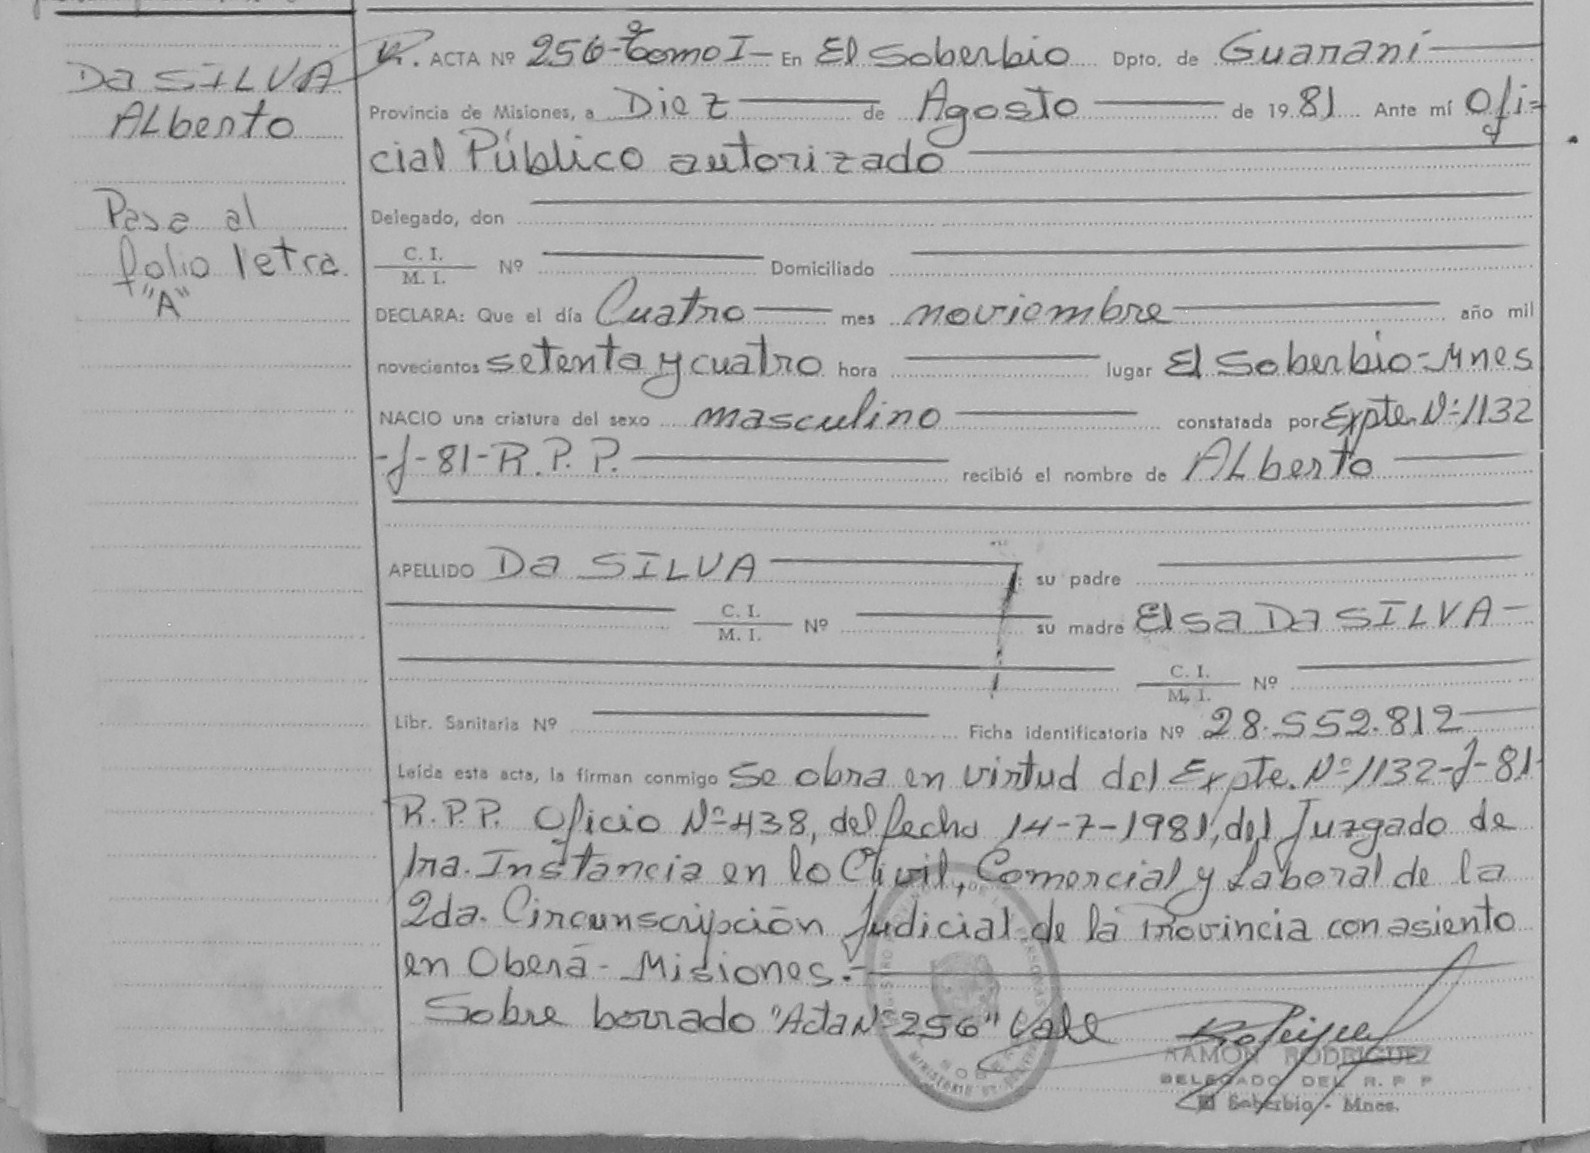 Da SILVA
ALberto
Pasa al
folio letra
"A"
R. ACTA Nº 256-Tomo I- En El Soberbio Dpto. de Guaraní
Provincia de Misiones, a Diez de Agosto de 19 81 Ante mí Ofi=
cial Público autorizado
Delegado, don
C. I.
M. I. Nº Domiciliado
DECLARA: Que el día Cuatro mes noviembre año mil
novecientos setenta y cuatro hora lugar El Soberbio-Mnes
NACIO una criatura del sexo masculino constatada por Expte. Nº 1132
-J-81-R.P.P. recibió el nombre de ALberto
APELLIDO Da SILVA su padre
C. I.
M. I. Nº su madre Elsa Da SILVA-
C. I.
M. I. Nº
Libr. Sanitaria Nº Ficha identificatoria Nº 28.552.812
Leída esta acta, la firman conmigo Se obra en virtud del Expte. Nº 1132-J-81-
R.P.P. Oficio Nº 438, del fecha 14-7-1981, del Juzgado de
1ra. Instancia en lo Civil, Comercial y Laboral de la
2da. Circunscripción Judicial de la Provincia con asiento
en Oberá - Misiones.-
Sobre borrado "Acta Nº 256" Vale
RAMON RODRIGUEZ
DELEGADO DEL R. P. P
El Soberbio - Mnes.